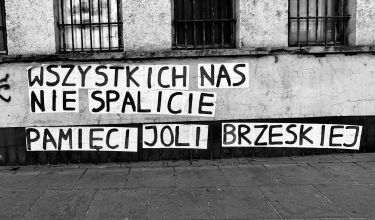 WSZYSTKICH NAS
NIE SPALICIE
PAMIĘCI JOLI BRZESKIEJ